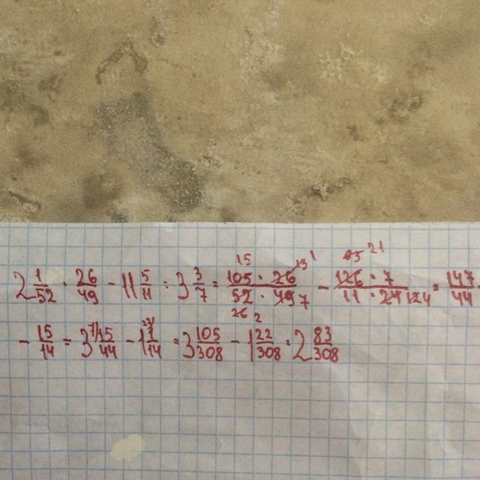 2 1/52 · 26/49 - 11 5/11 : 3 3/7 = 105 · 26 / 52 · 49 - 126 · 7 / 11 · 24 = 147/44
- 15/14 = 3 15/44 - 1 1/14 = 3 105/308 - 1 22/308 = 2 83/308